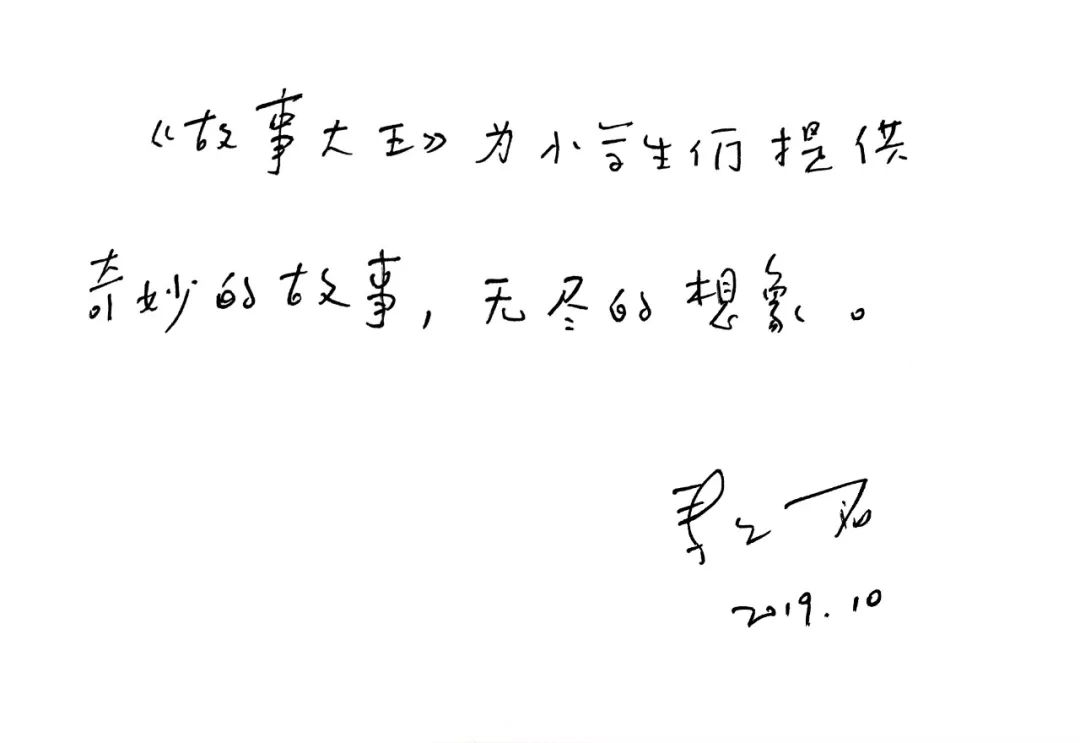 《故事大王》为小学生们提供
奇妙的故事，无尽的想象。
2019.10